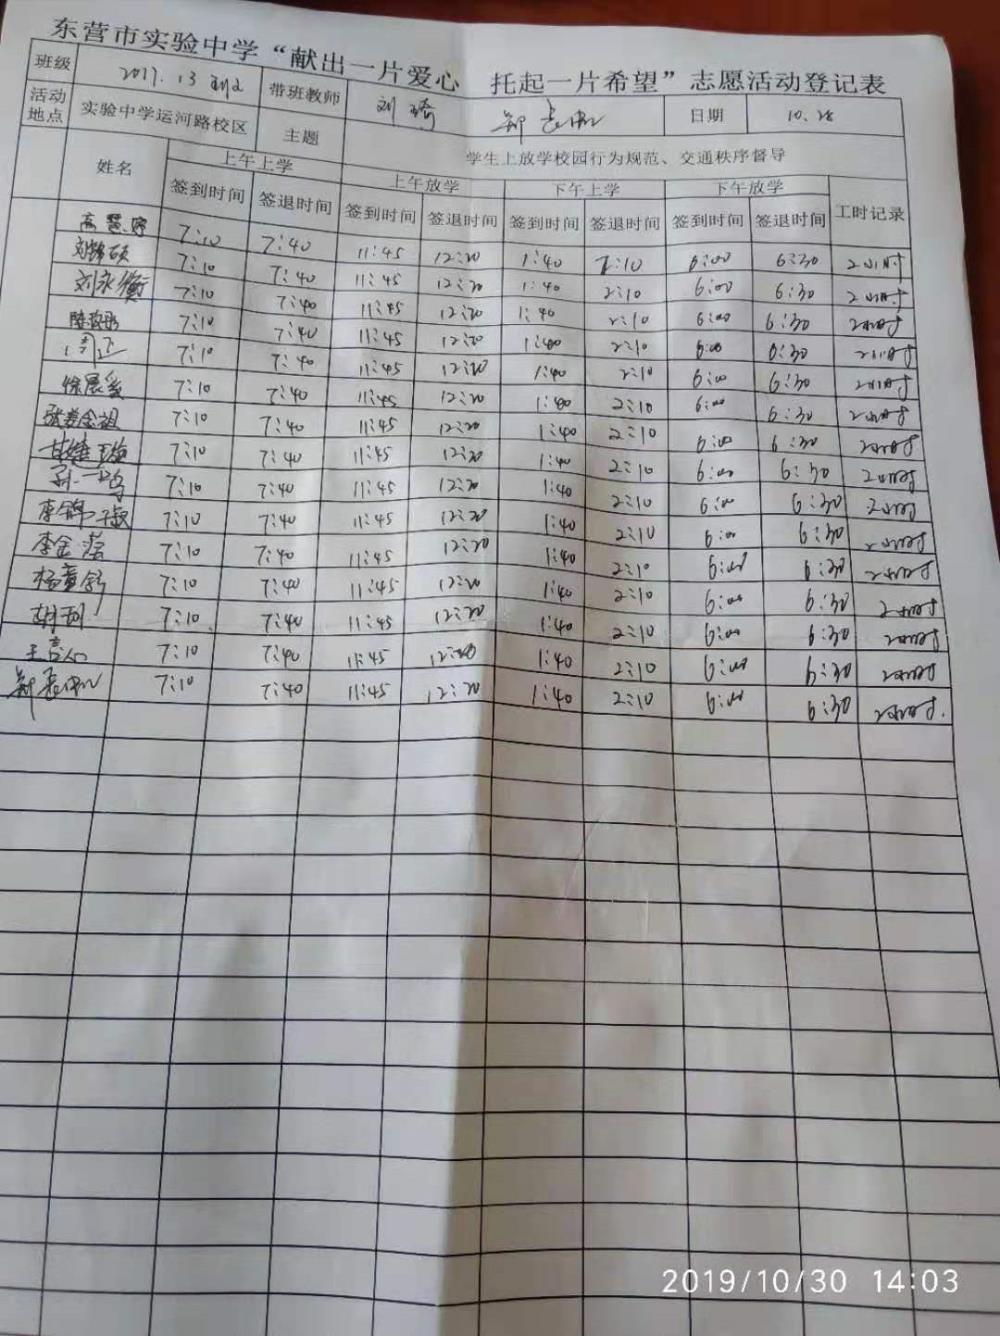 东营市实验中学“献出一片爱心 托起一片希望”志愿活动登记表
班级 2017.13 带班教师 刘 日期 10.28
活动地点 实验中学运河路校区 主题 学生上放学校园行为规范、交通秩序督导
姓名 上午上学 上午放学 下午上学 下午放学 工时记录
签到时间 签退时间 签到时间 签退时间 签到时间 签退时间 签到时间 签退时间
高慧 7:10 7:40 11:45 12:20 1:40 2:10 6:00 6:30 2小时
刘 硕 7:10 7:40 11:45 12:20 1:40 2:10 6:00 6:30 2小时
刘永衡 7:10 7:40 11:45 12:20 1:40 2:10 6:00 6:30 2小时
7:10 7:40 11:45 12:20 1:40 2:10 6:00 6:30 2小时
7:10 7:40 11:45 12:20 1:40 2:10 6:00 6:30 2小时
徐晨 7:10 7:40 11:45 12:20 1:40 2:10 6:00 6:30 2小时
张 金祖 7:10 7:40 11:45 12:20 1:40 2:10 6:00 6:30 2小时
7:10 7:40 11:45 12:20 1:40 2:10 6:00 6:30 2小时
孙一鸣 7:10 7:40 11:45 12:20 1:40 2:10 6:00 6:30 2小时
李锦 7:10 7:40 11:45 12:20 1:40 2:10 6:00 6:30 2小时
李金 7:10 7:40 11:45 12:20 1:40 2:10 6:00 6:30 2小时
杨 舒 7:10 7:40 11:45 12:20 1:40 2:10 6:00 6:30 2小时
胡玥 7:10 7:40 11:45 12:20 1:40 2:10 6:00 6:30 2小时
王 7:10 7:40 11:45 12:20 1:40 2:10 6:00 6:30 2小时
7:10 7:40 11:45 12:20 1:40 2:10 6:00 6:30 2小时.
2019/10/30 14:03